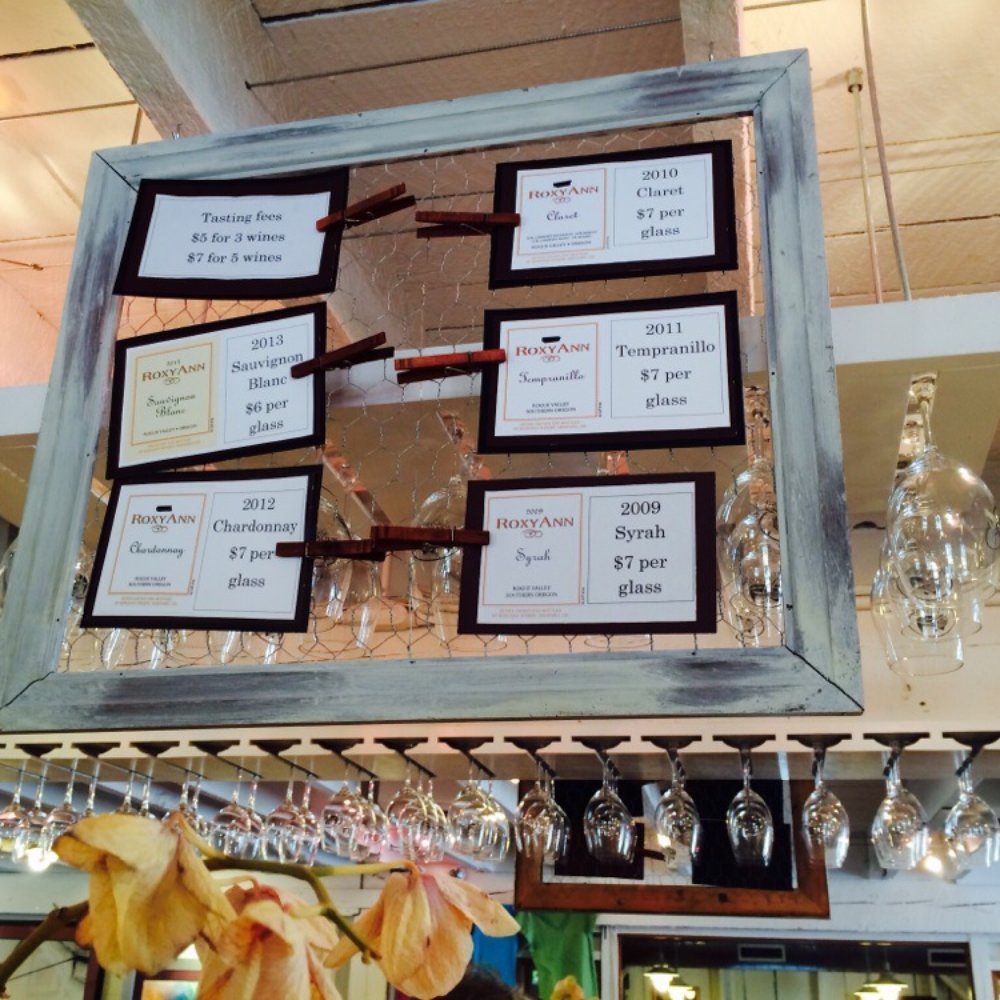 Tasting fees
$5 for 3 wines
$7 for 5 wines
2010
Claret
$7 per
glass
ROXYANN
Claret
ROGUE VALLEY • OREGON
2013
ROXYANN
Sauvignon
Blanc
ROGUE VALLEY • OREGON
2013
Sauvignon
Blanc
$6 per
glass
ROXYANN
Tempranillo
ROGUE VALLEY
SOUTHERN OREGON
2011
Tempranillo
$7 per
glass
ROXYANN
Chardonnay
ROGUE VALLEY
SOUTHERN OREGON
2012
Chardonnay
$7 per
glass
2009
ROXYANN
Syrah
ROGUE VALLEY
SOUTHERN OREGON
2009
Syrah
$7 per
glass